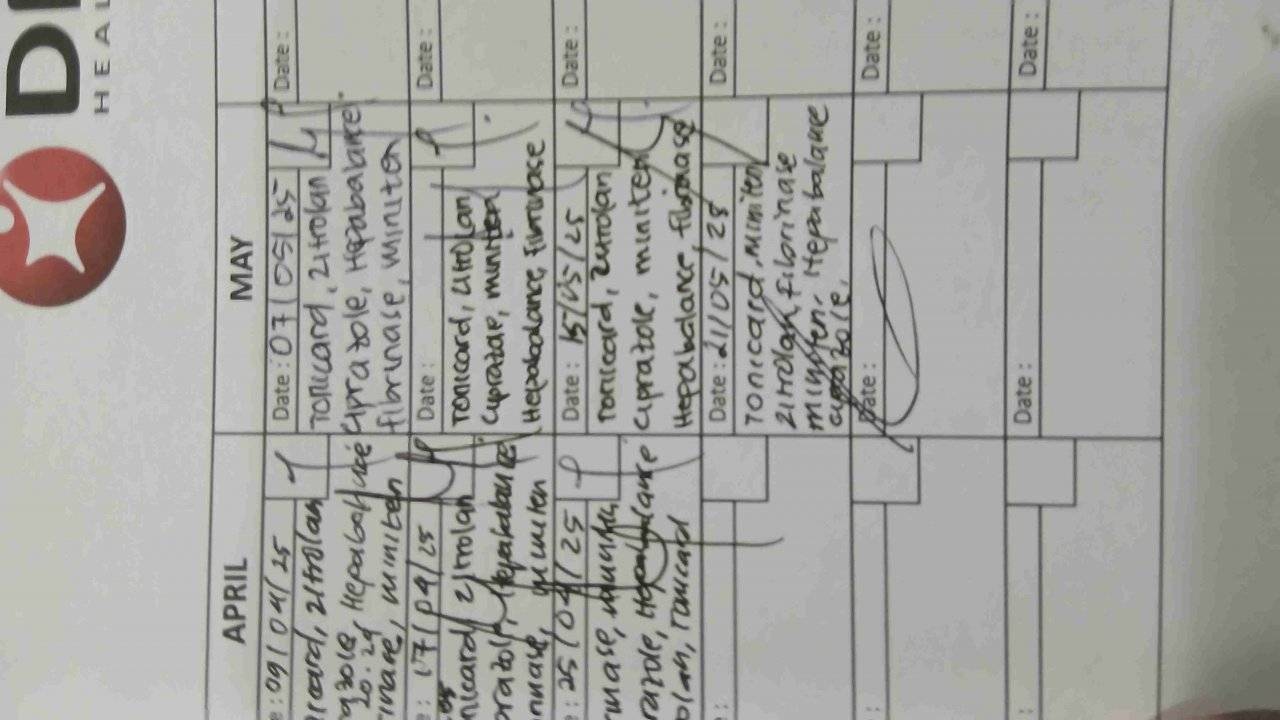 D
HEAL
APRIL
: 09/04/25
icard, zitrolan
azole, Hepabalance
20.29
inase, miniten
: 17/04/25
nicard, zitrolan
prazole, Hepabalance
inase, miniten
: 25/04/25
inase,
razole, Hepabalance
olan, Tonicard
:
:
:
MAY
Date : 07/05/25
Tonicard, Zitrolan
Ciprazole, Hepabalance
fibrinase, miniten
Date :
Tonicard, Zitrolan
Ciprazole, miniten
Hepabalance, fibrinase
Date : 15/05/25
Tonicard, Zitrolan
Ciprazole, miniten
Hepabalance fibrinase
Date : 21/05/25
Tonicard, Miniten
Zitrolan, fibrinase
miniten, Hepabalance
Ciprazole,
Date :
Date :
Date :
Date :
Date :
Date :
Date :
Date :